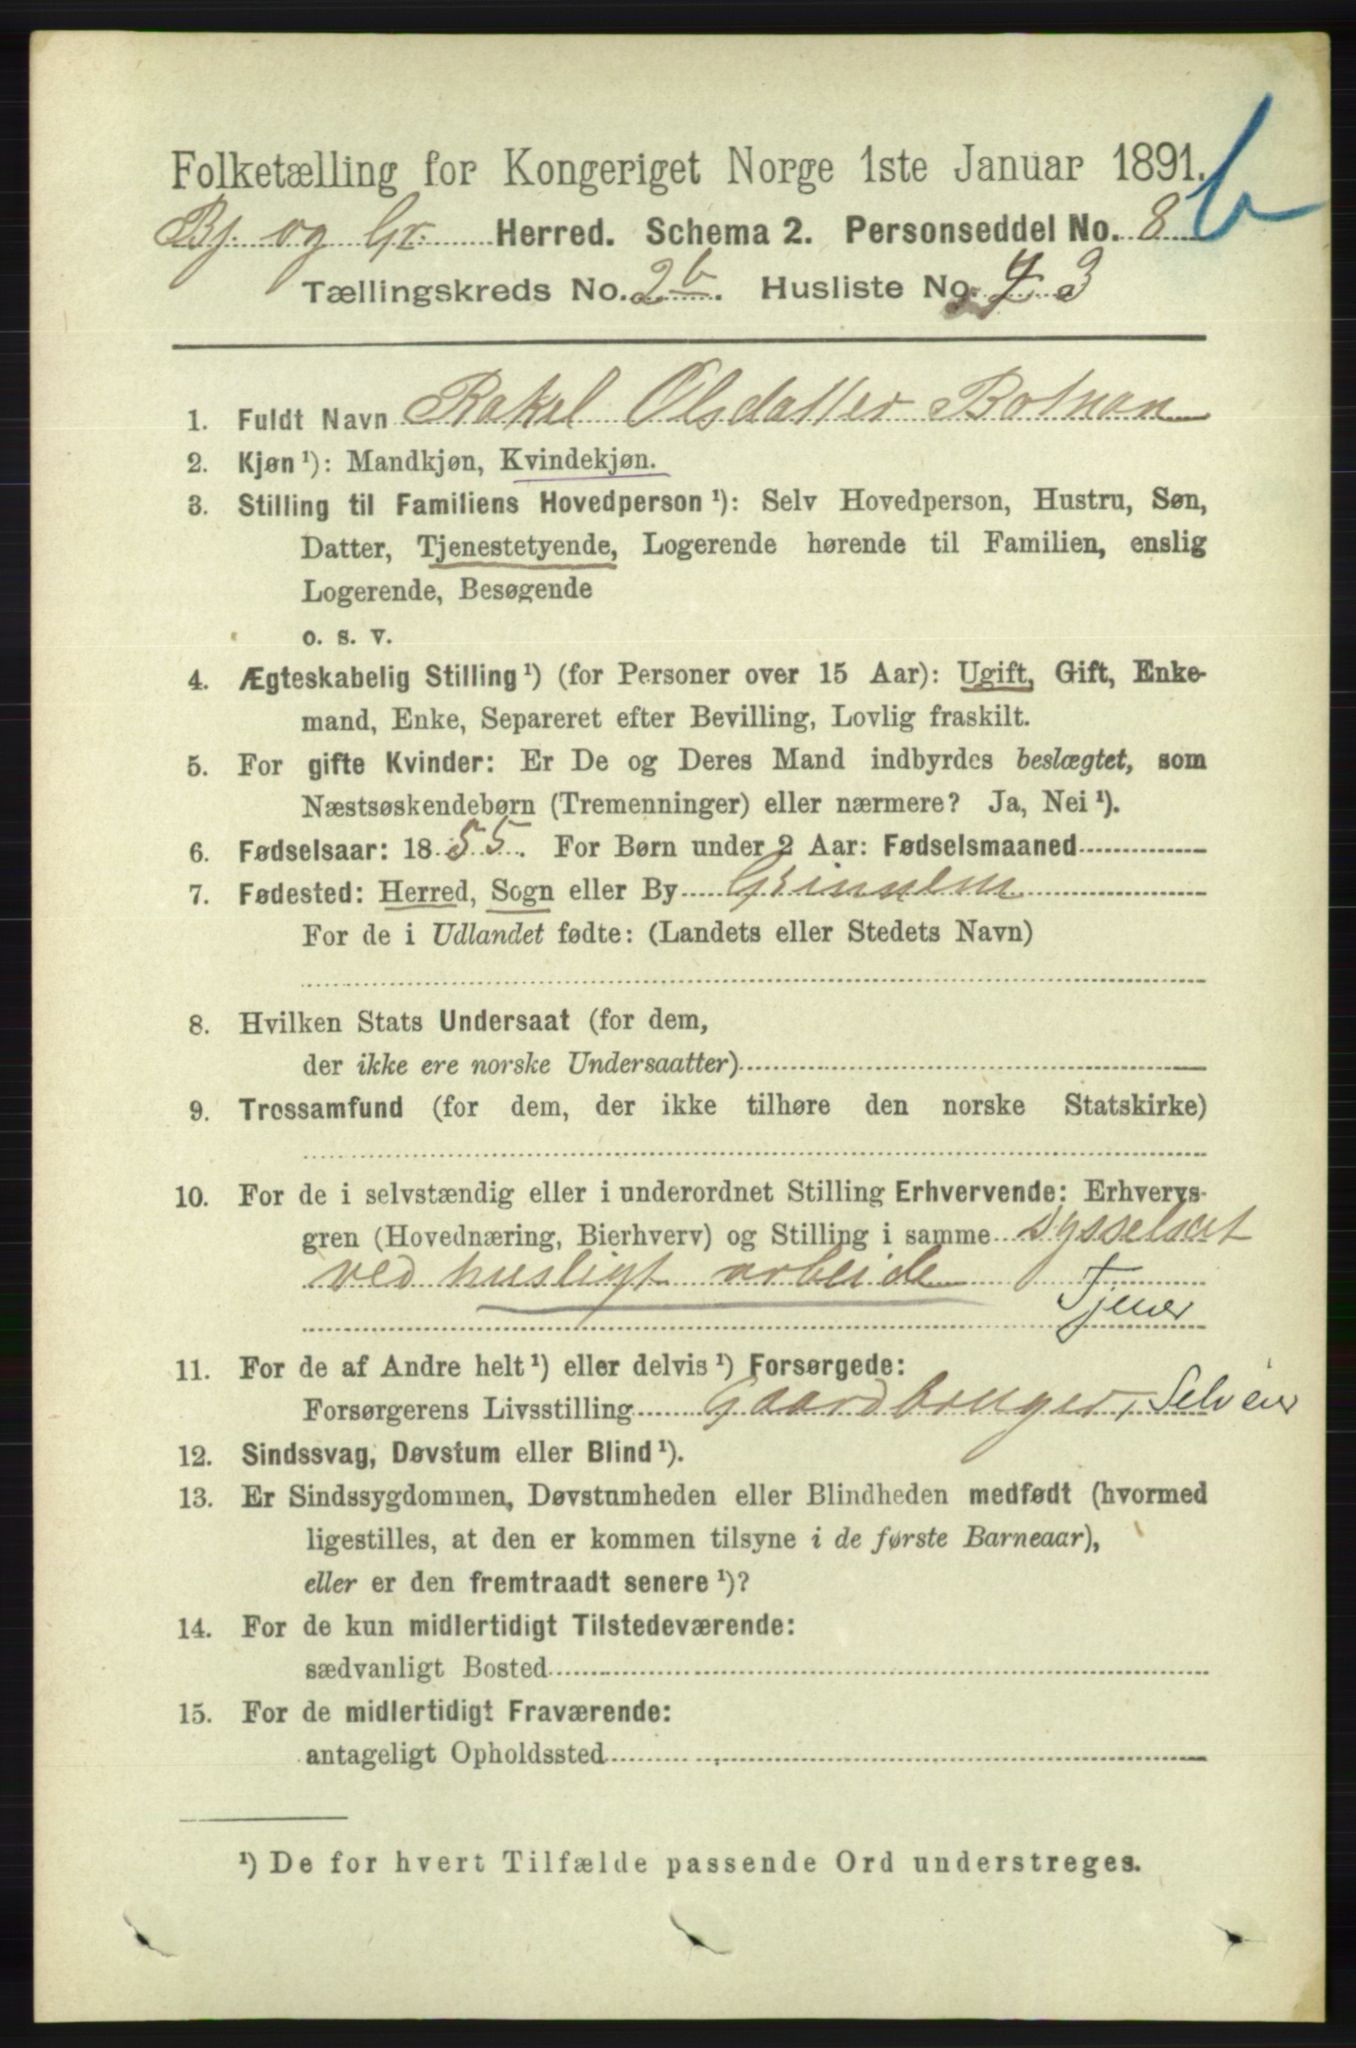 Folketælling for Kongeriget Norge 1ste Januar 1891.
b
Bj. og Gr. Herred. Schema 2. Personseddel No. 8
Tællingskreds No. 2 b. Husliste No. 3
1. Fuldt Navn Rakel Olsdatter Botnan
2. Kjøn ¹): Mandkjøn, Kvindekjøn.
3. Stilling til Familiens Hovedperson ¹): Selv Hovedperson, Hustru, Søn,
Datter, Tjenestetyende, Logerende hørende til Familien, enslig
Logerende, Besøgende
o. s. v.
4. Ægteskabelig Stilling ¹) (for Personer over 15 Aar): Ugift, Gift, Enke-
mand, Enke, Separeret efter Bevilling, Lovlig fraskilt.
5. For gifte Kvinder: Er De og Deres Mand indbyrdes beslægtet, som
Næstsøskendebørn (Tremenninger) eller nærmere? Ja, Nei ¹).
6. Fødselsaar: 1855. For Børn under 2 Aar: Fødselsmaaned
7. Fødested: Herred, Sogn eller By Grinnem
For de i Udlandet fødte: (Landets eller Stedets Navn)
8. Hvilken Stats Undersaat (for dem,
der ikke ere norske Undersaatter)
9. Trossamfund (for dem, der ikke tilhøre den norske Statskirke)
10. For de i selvstændig eller i underordnet Stilling Erhvervende: Erhvervs-
gren (Hovednæring, Bierhverv) og Stilling i samme sysselsat
ved husligt arbeide
Tjener
11. For de af Andre helt ¹) eller delvis ¹) Forsørgede:
Forsørgerens Livsstilling Gaardbruger, Selveier
12. Sindssvag, Døvstum eller Blind ¹).
13. Er Sindssygdommen, Døvstumheden eller Blindheden medfødt (hvormed
ligestilles, at den er kommen tilsyne i de første Barneaar),
eller er den fremtraadt senere ¹)?
14. For de kun midlertidigt Tilstedeværende:
sædvanligt Bosted
15. For de midlertidigt Fraværende:
antageligt Opholdssted
¹) De for hvert Tilfælde passende Ord understreges.